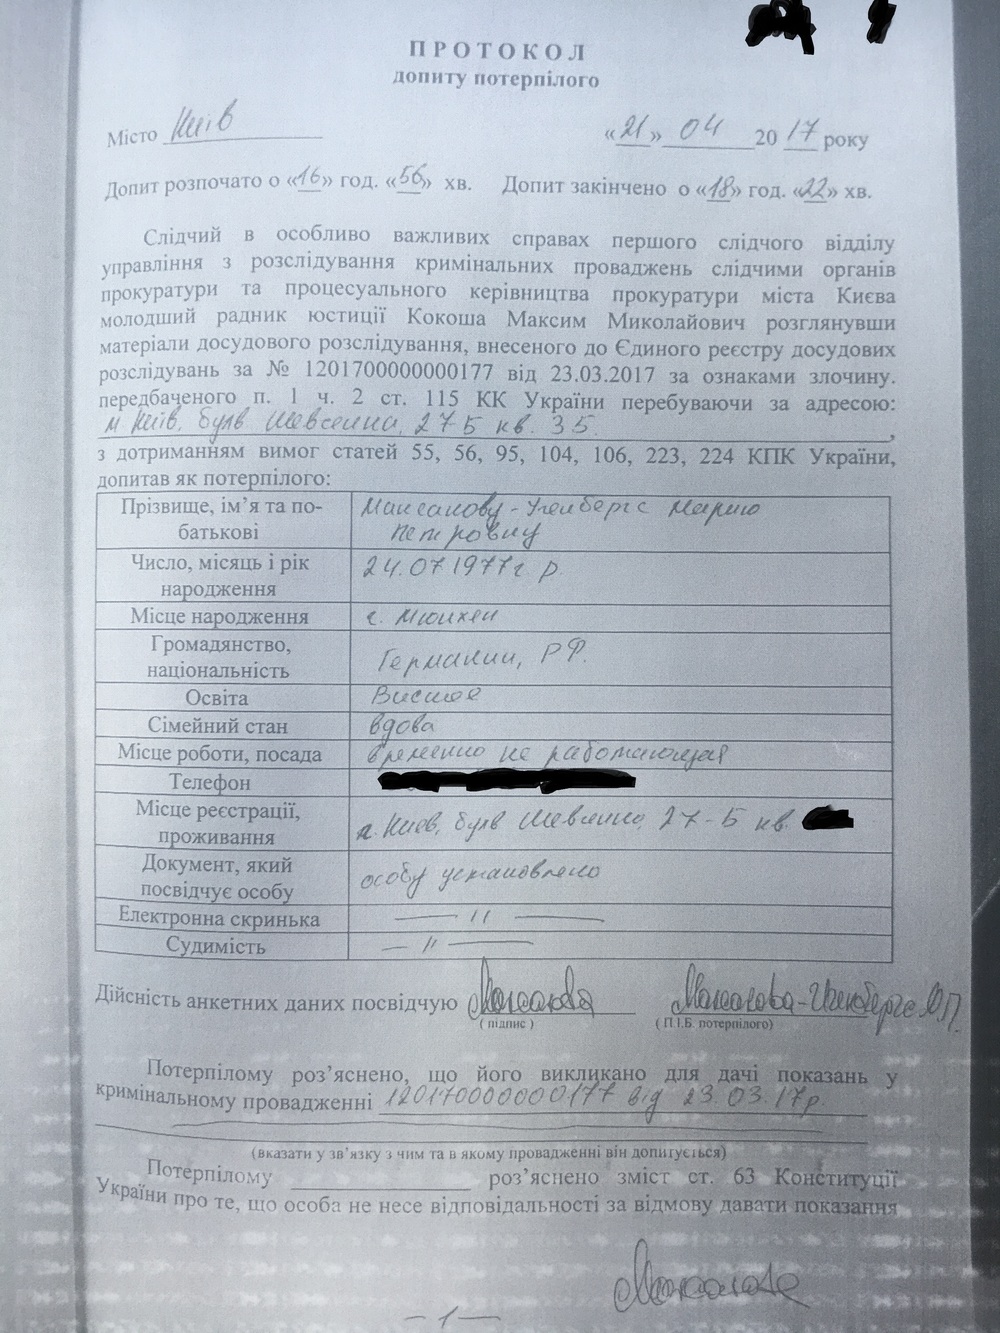 ПРОТОКОЛ
допиту потерпілого
Місто Київ «21» 04 2017 року
Допит розпочато о «16» год. «56» хв. Допит закінчено о «18» год. «22» хв.
Слідчий в особливо важливих справах першого слідчого відділу
управління з розслідування кримінальних проваджень слідчими органів
прокуратури та процесуального керівництва прокуратури міста Києва
молодший радник юстиції Кокоша Максим Миколайович розглянувши
матеріали досудового розслідування, внесеного до Єдиного реєстру досудових
розслідувань за № 1201700000000177 від 23.03.2017 за ознаками злочину.
передбаченого п. 1 ч. 2 ст. 115 КК України перебуваючи за адресою:
м. Київ, булв Шевченка, 27Б кв. 35. ,
з дотриманням вимог статей 55, 56, 95, 104, 106, 223, 224 КПК України,
допитав як потерпілого:
Прізвище, ім’я та по-батькові Максакову-Игенбергс Марию
Петровну
Число, місяць і рік народження 24.07.1977г. р.
Місце народження г. Мюнхен
Громадянство, національність Германии, РФ.
Освіта Высшее
Сімейний стан вдова
Місце роботи, посада временно не работающая
Телефон
Місце реєстрації, проживання г. Киев, булв Шевченка, 27-Б кв.
Документ, який посвідчує особу особу установлено
Електронна скринька — // —
Судимість — // —
Дійсність анкетних даних посвідчую Максакова Максакова-Игенбергс М.П.
( підпис ) ( П.І.Б. потерпілого)
Потерпілому роз’яснено, що його викликано для дачі показань у
кримінальному провадженні 12017000000000177 від 23.03.17р.
(вказати у зв’язку з чим та в якому провадженні він допитується)
Потерпілому роз’яснено зміст ст. 63 Конституції
України про те, що особа не несе відповідальності за відмову давати показання
Максакова
— 1 —